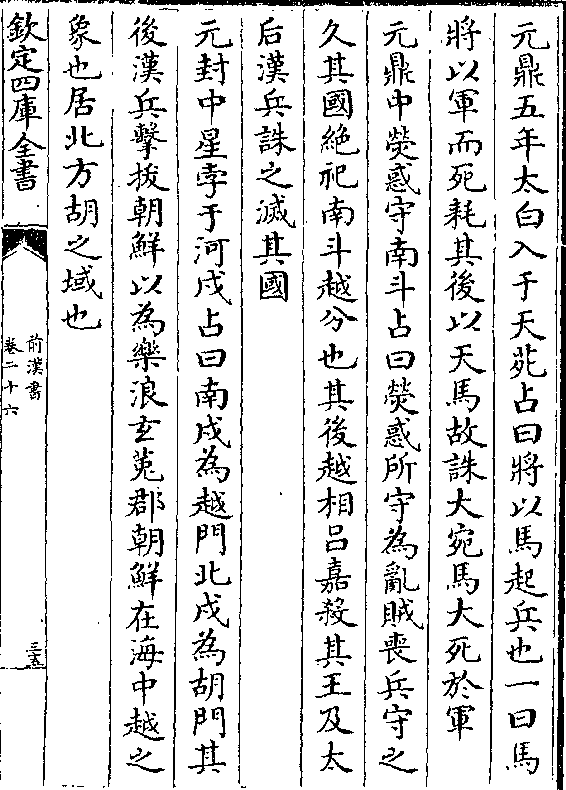 元鼎五年太白入于天苑占曰將以馬起兵也一曰馬
將以軍而死耗其後以天馬故誅大宛馬大死於軍
元鼎中熒惑守南斗占曰熒惑所守為亂賊喪兵守之
久其國絶祀南斗越分也其後越相吕嘉殺其王及太
后漢兵誅之滅其國
元封中星孛于河戍占曰南戍為越門北戍為胡門其
後漢兵擊拔朝鮮以為樂浪玄菟郡朝鮮在海中越之
象也居北方胡之域也
欽定四庫全書
前漢書
卷二十六
三五